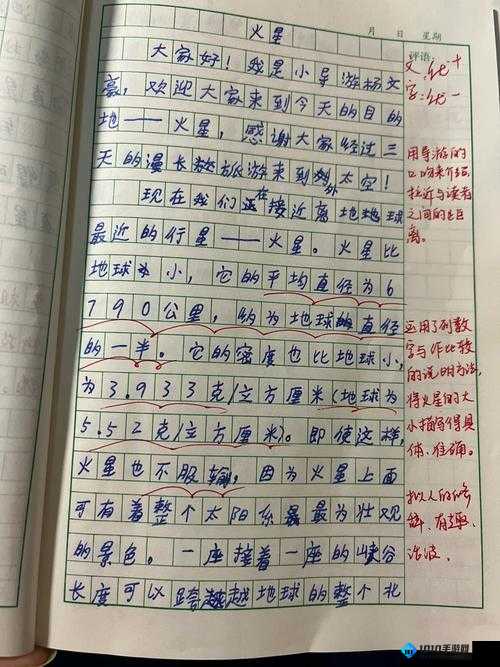 火星
月 日 星期
大家好！我是小导游杨文
豪，欢迎大家来到今天的目的
地——火星，感谢大家经过三
天的漫长旅游来到外太空！
现在我们正在接近离地球
最近的行星——火星。火星比
地球小，它的平均直径为6
790公里，约为地球的直径
的一半。它的密度也比地球小，
为3.933克/立方厘米（地球为
5.52克/立方厘米）。即使这样，
火星也不服输，因为火星上面
可有着整个太阳系最为壮观
的景色。一座接着一座的峡谷
长度可以跨越地球的整个北
评语：
文：优+
字：优-
用导游的
口吻来介绍，
拉近与读者
之间的距
离。
运用了列数
字与作比较
的说明方法，
将火星的大
小描写得具
体、准确。
拟人的修
辞，有趣、
活泼。
1010手游网